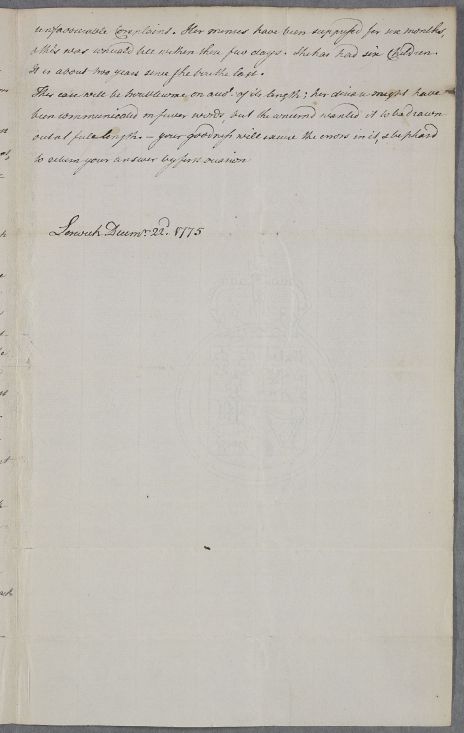 unfavourable Complaint. Her menses have been suppress'd for six months,
this was untill within these few days. She has had six Children.
It is about two years since she bore the last.
This case will be troublesome on accot. of its length; her disease might have
been communicated in fewer words, but the concern'd wanted it to be drawn
out at full length. – your goodness will excuse the errors in it, & be pleas'd
to return your answer by first occasion
Lerwick Decemr. 22d. 1775